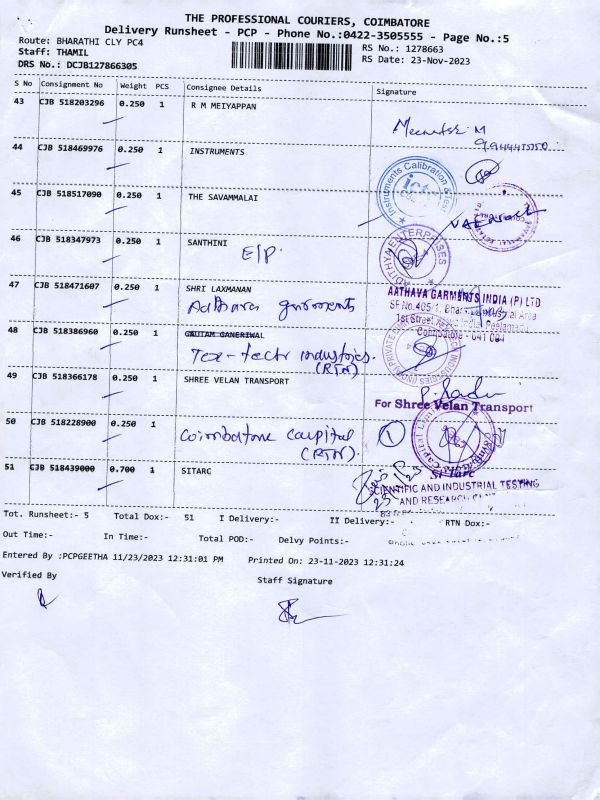 THE PROFESSIONAL COURIERS, COIMBATORE
Delivery Runsheet - PCP - Phone No.:0422-3505555 - Page No.:5
Route: BHARATHI CLY PC4
RS No.: 1278663
Staff: THAMIL
RS Date: 23-Nov-2023
DRS No.: DCJB127866305
S No Consignment No Weight PCS Consignee Details Signature
43 CJB 518203296 0.250 1 R M MEIYAPPAN
44 CJB 518469976 0.250 1 INSTRUMENTS
Instruments Calibration
45 CJB 518517090 0.250 1 THE SAVAMMALAI
46 CJB 518347973 0.250 1 SANTHINI
E/P.
ENTERPRISES
47 CJB 518471607 0.250 1 SHRI LAXMANAN
AATHAVA GARMENTS INDIA (P) LTD
Aathava garments
SF No.405/1,
1st Street,
Coimbatore - 641 004
48 CJB 518386960 0.250 1 GAUTAM GANERIWAL
Tex-tech industries.
(RTN)
49 CJB 518366178 0.250 1 SHREE VELAN TRANSPORT
For Shree Velan Transport
50 CJB 518228900 0.250 1
Coimbatore capital
(RTN).
51 CJB 518439000 0.700 1 SITARC
SCIENTIFIC AND INDUSTRIAL TESTING
AND RESEARCH
Tot. Runsheet:- 5 Total Dox:- 51 I Delivery:- II Delivery:- RTN Dox:-
Out Time:- In Time:- Total POD:- Delvy Points:-
Entered By :PCPGEETHA 11/23/2023 12:31:01 PM Printed On: 23-11-2023 12:31:24
Verified By
Staff Signature